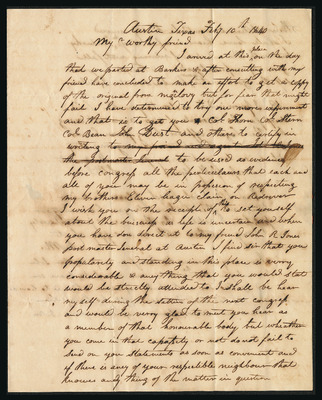 Austin Texas Feby 10th 1840
My worthy friend
I arived at this place on the day
that we parted at Bankers & after consulting with my
friend have concluded to make an effort to get a copy
of the original from but for fear that might
fail I have determined to try one more experiment
and that is to get you & Col Thorn Col Stern
Col Bean John Durst and others to certify in
writing to my friend
the postmaster General to be used as evidence
before congress all the particulars that each and
all of you may be in possession of respecting
my claim on
I wish you on the receipt of this to set yourself
about the business as life is uncertain and when
you have don direct it to my friend John R Jones
post master General at Austin I find sir that your
popularity and standing in this place is verry
considerable & any thing that you would state
would be strictly attended to I shall be hear
my self during the setting of the next congress
and would be verry glad to meet you hear as
a member of that honourable body but wheather
you come in that capasity or not do not fail to
send on your statements as soon as convenient and
if there is any of your respectible neighbours that
knowes any thing of the matter in question